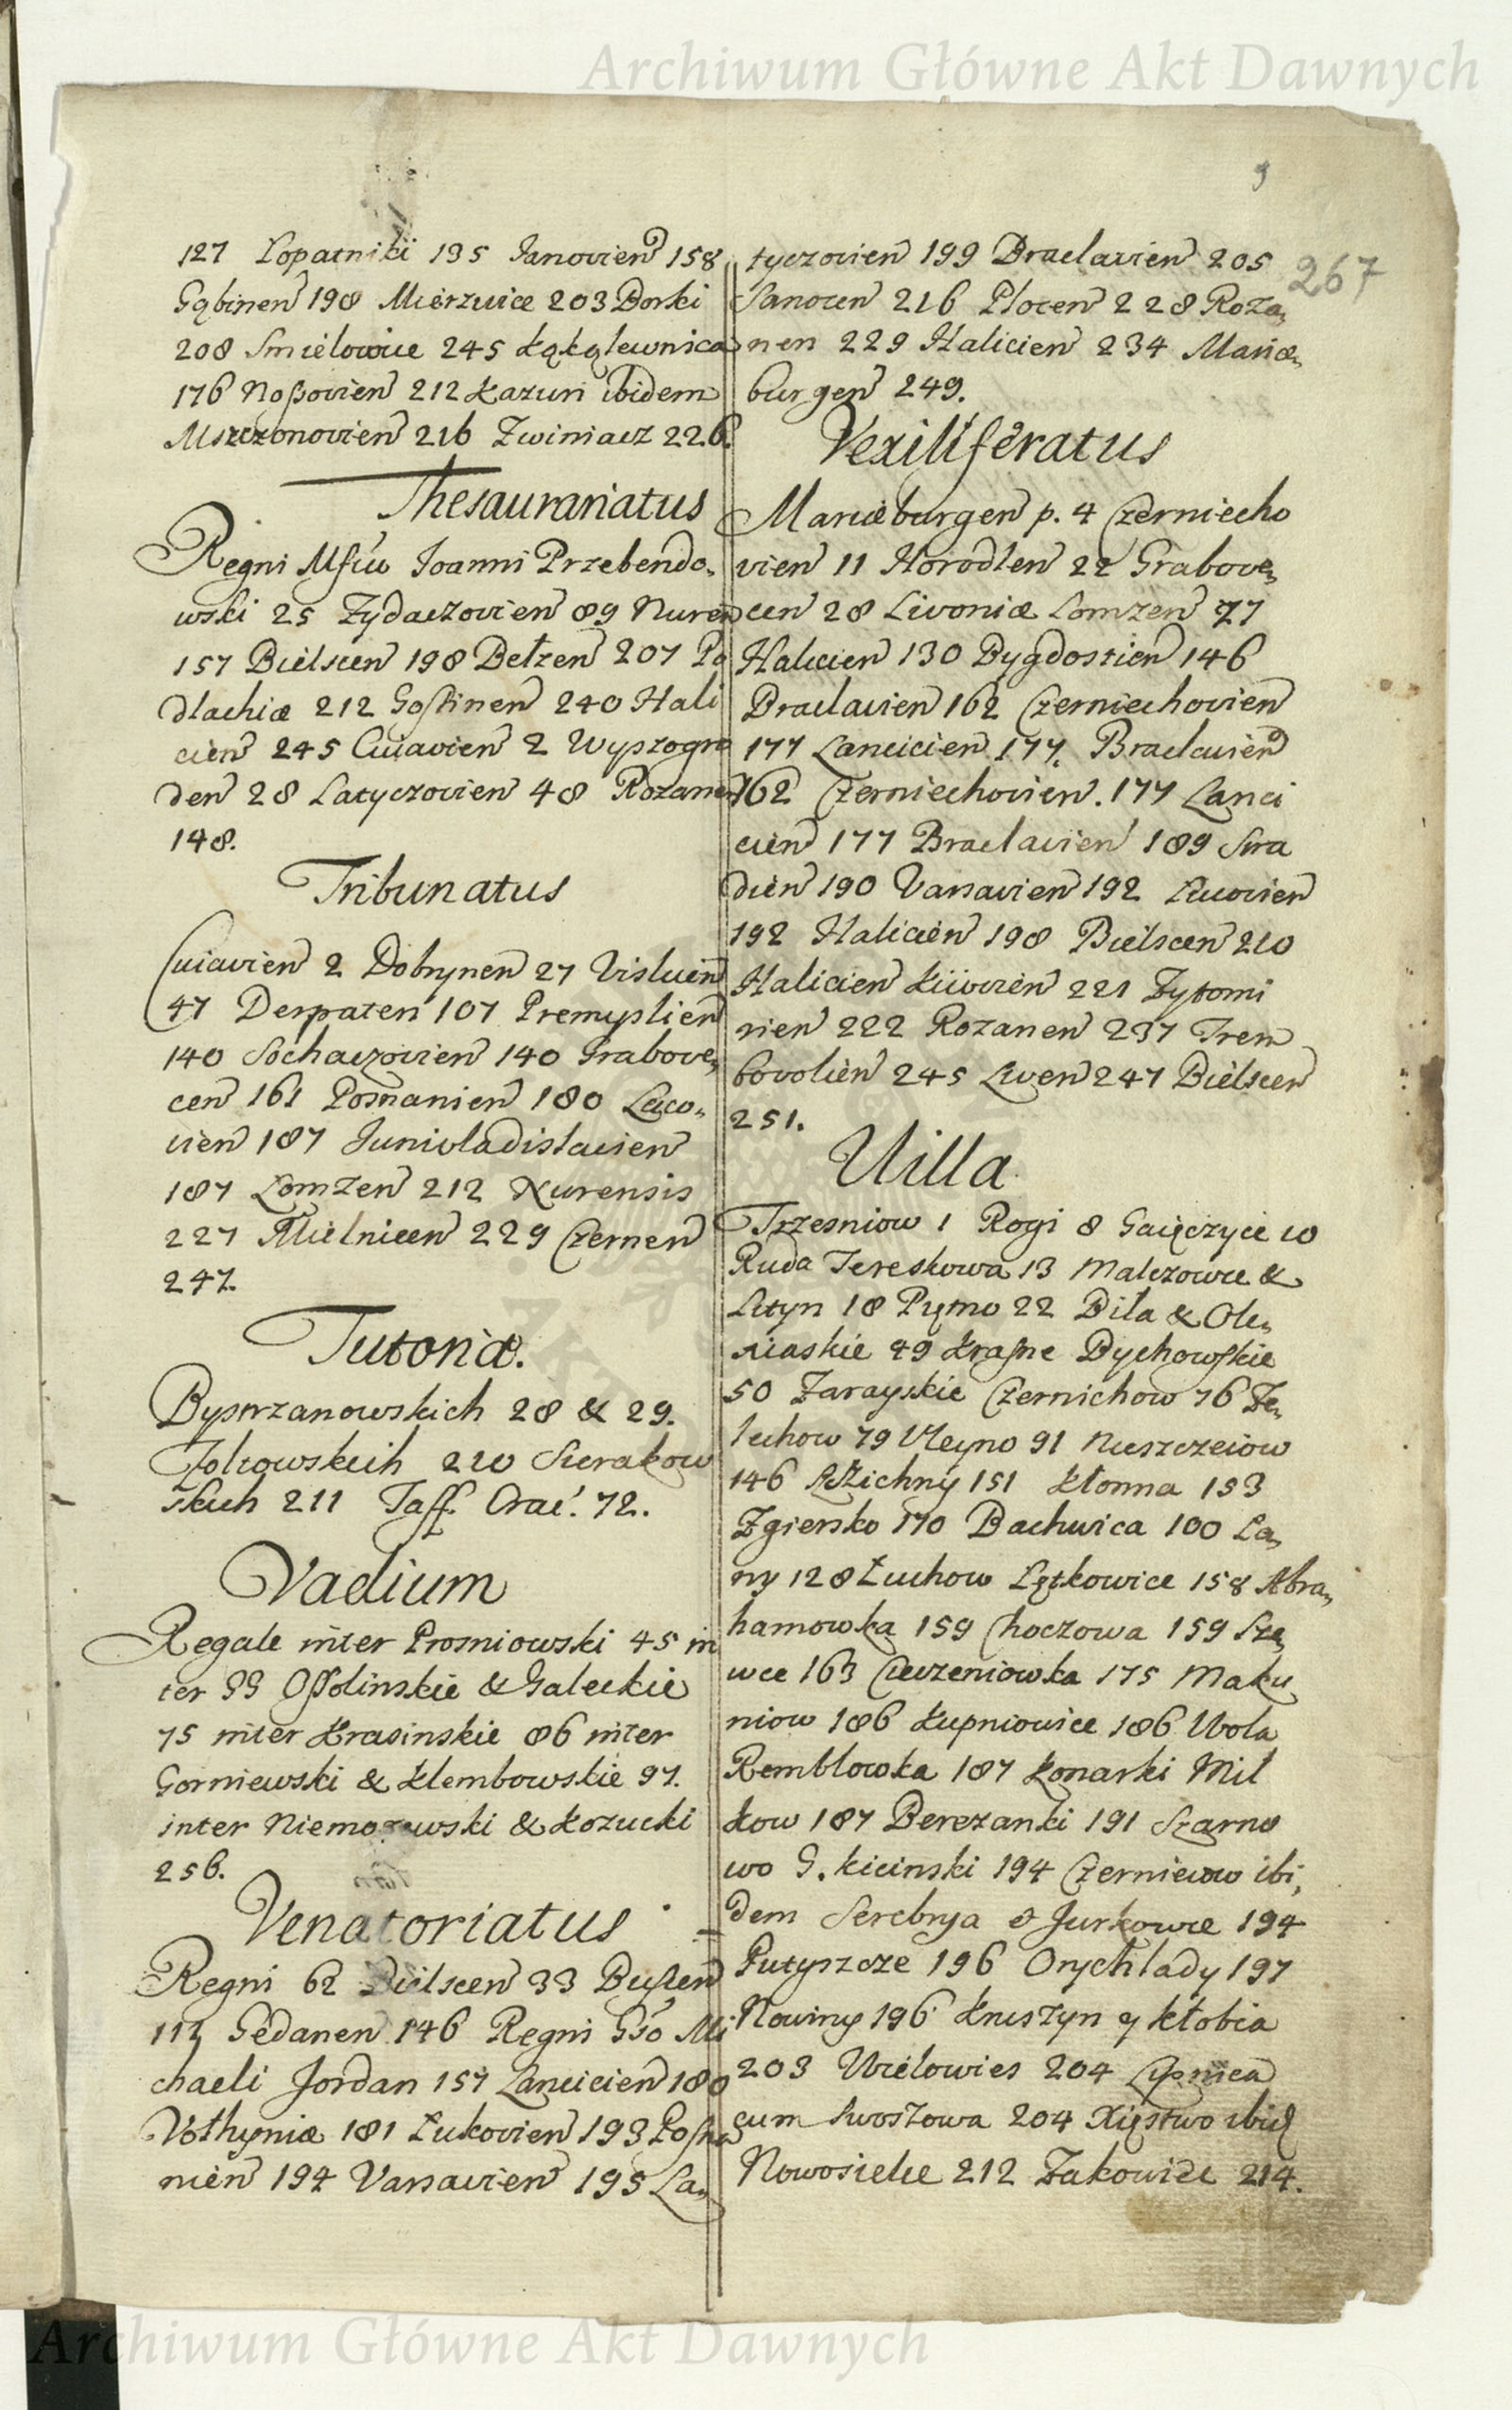 Archiwum Główne Akt Dawnych
9
267
127 Lopatniki 135 Janovien 158
Gąbinen 198 Mierzwice 203 Borki
208 Smielowice 245 Kąkąlewnica
176 Noßovien 212 Kazuń ibidem
Mszczonovien 216 Zwiniacz 226.
Thesaurariatus
Regni Joanni Przebendo-
wski 25 Zydaczovien 89 Nuren
157 Bielscen 198 Bełzen 207 Po
dlachiæ 212 Gostinen 240 Hali
cien 245 Cuiavien 2 Wyszogro
den 28 Latyczovien 48 Rozanen
148.
Tribunatus
Cuiavien 2 Dobrynen 27 Vislicien
47 Derpaten 107 Premyslien
140 Sochaczovien 140 Grabove-
cen 161 Posnanien 180 Laco-
vien 187 Junivladislavien
187 Lomzen 212 Nurensis
227 Mielnicen 229 Czernen
247.
Tutoriæ.
Bystrzanowskich 28 & 29.
Zołtowskich 210 Sierakow
skich 211 Taff. Orac. 72.
Vadium
Regale inter Prosniowski 45 in
ter GG Ossolinskie & Galeckie
75 inter Krasinskie 86 inter
Gorniewski & Klembowskie 97.
inter Niemo & Kozucki
256.
Venatoriatus
Regni 62 Bielscen 33 Busten
Gedanen 146 Regni Gso Mi
chaeli Jordan 157 Lancicien 180
Vołhyniæ 181 Łukovien 193 Posna
nien 194 Varsavien 195 La-
tyczovien 199 Braclavien 205
Sanocen 216 Plocen 228 Roza-
nen 229 Halicien 234 Mariæ-
burgen 249.
Vexilliferatus
Mariæburgen p. 4 Czerniecho
vien 11 Horodlen 22 Grabove-
cen 28 Livoniæ Lomzen 77
Halicien 130 Bygdostien 146
Braclavien 162 Czerniechovien
177 Lancicien 177. Braclavien
162 Czerniechovien. 177 Lanci
cien 177 Braclavien 189 Sira
dien 190 Varsavien 192 Kiiovien
192 Halicien 198 Bielscen 210
Halicien Kiiovien 221 Zytomi
rien 222 Rozanen 237 Trem
bovolien 245 Liven 247 Bielscen
251.
Villa
Trzesniow 1 Rogi 8 Gaięczyce 10
Ruda Tereskowa 13 Malczowce &
Letyn 18 Pętno 22 Biła & Ole-
niaskie 49 Krasne Bychowskie
50 Zarayskie Czernichow 76 Ze-
lechow 79 Uleyno 91 Nieszczeiow
146 151 Kłonna 153
Zgiersko 170 Bachwica 100 La-
ny 128 Łuchow Lętkowice 158 Abra-
hamowka 159 Choczowa 159 Sze-
wce 163 Cieczeniowka 175 Maku
niow 186 Łupniowice 186 Wola
Remblowka 187 Konarski Mił
kow 187 Berezanki 191 Szarno
wo G. Kicinski 194 Czerniewo ibi-
dem Serebrya & Jurkowce 194
Putyszcze 196 Orychlady 197
Nowiny 196 Kruszyn y Kłobia
203 Wielowies 204 Lipnica
cum Swoszowa 204 Xięstwo ibid
Nowosielce 212 Zakowice 214.
Archiwum Główne Akt Dawnych